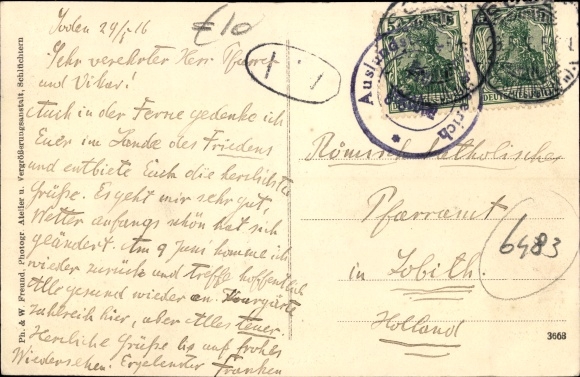 Soden 29/5 16
Sehr verehrter Herr Pfarrer
und Vikar!
Auch in der Ferne gedenke ich
Euer im Lande des Friedens
und entbiete Euch die herzlichste
Grüße. Es geht mir sehr gut,
Wetter anfangs schön hat sich
geändert. Am 9 Juni komme ich
wieder zurück und treffe hoffentlich
Alle gesund wieder an. Kurgäste
zahlreich hier, aber Alles teuer.
Herzliche Grüße bis auf frohes
Wiedersehen. Ergebenster Franken
£10
1.
Ausland
Römisch katholisches
Pfarramt
in Lobith.
Holland
6483
3668
Ph. & W. Freund, Photogr. Atelier u. Vergrößerungsanstalt, Schlüchtern